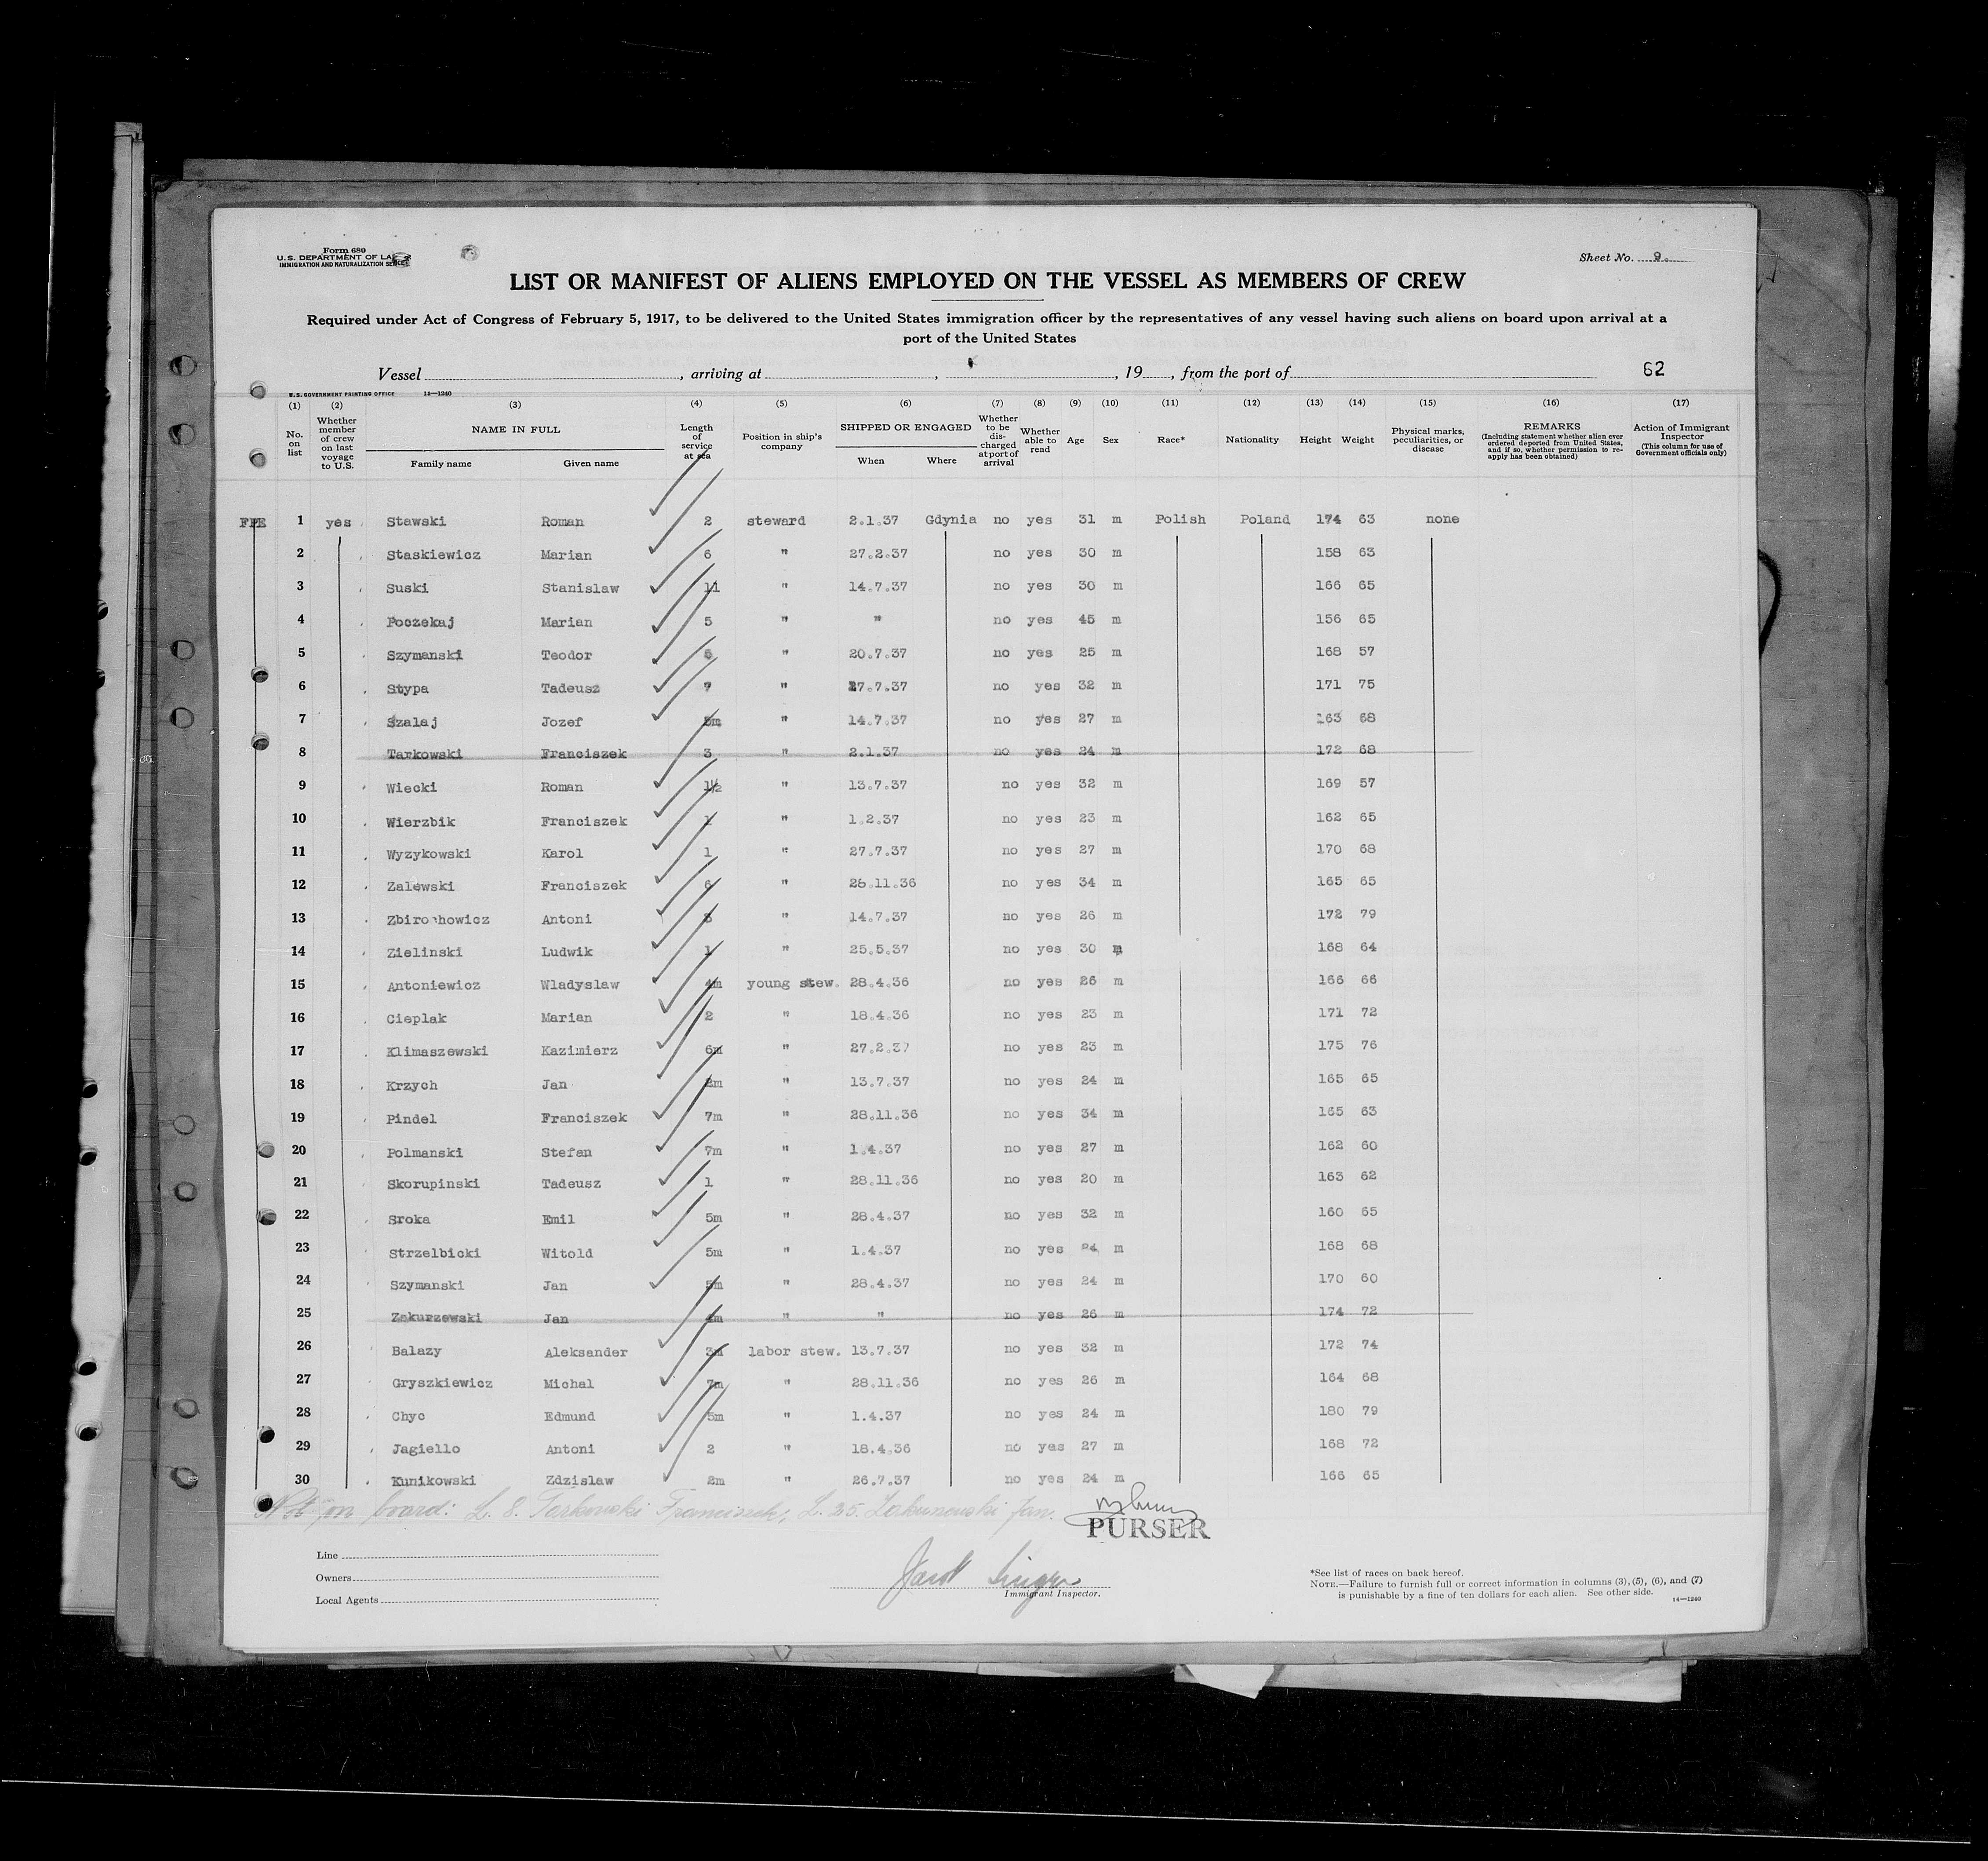 Form 680
U.S. DEPARTMENT OF LA
IMMIGRATION AND NATURALIZATION
Sheet No. 9.
LIST OR MANIFEST OF ALIENS EMPLOYED ON THE VESSEL AS MEMBERS OF CREW
Required under Act of Congress of February 5, 1917, to be delivered to the United States immigration officer by the representatives of any vessel having such aliens on board upon arrival at a
port of the United States
Vessel , arriving at , , 19 , from the port of 62
U.S. GOVERNMENT PRINTING OFFICE 14—1240
(1) (2) (3) (4) (5) (6) (7) (8) (9) (10) (11) (12) (13) (14) (15) (16) (17)
No. on list
Whether member of crew on last voyage to U.S.
NAME IN FULL
Family name Given name
Length of service at sea
Position in ship's company
SHIPPED OR ENGAGED
When Where
Whether to be discharged at port of arrival
Whether able to read
Age
Sex
Race*
Nationality
Height
Weight
Physical marks, peculiarities, or disease
REMARKS
(Including statement whether alien ever ordered deported from United States, and if so, whether permission to reapply has been obtained)
Action of Immigrant Inspector
(This column for use of Government officials only)
1 yes Stawski Roman 2 steward 2.1.37 Gdynia no yes 31 m Polish Poland 174 63 none
2 Staskiewicz Marian 6 " 27.2.37 no yes 30 m 158 63
3 Suski Stanislaw 11 " 14.7.37 no yes 30 m 166 65
4 Poczekaj Marian 5 " " no yes 45 m 156 65
5 Szymanski Teodor " 20.7.37 no yes 25 m 168 57
6 Stypa Tadeusz 7 " 27.7.37 no yes 32 m 171 75
7 Szalaj Jozef 5m " 14.7.37 no yes 27 m 163 68
8 Tarkowski Franciszek 3 " 2.1.37 no yes 24 m 172 68
9 Wiecki Roman 1½ " 13.7.37 no yes 32 m 169 57
10 Wierzbik Franciszek 1 " 1.2.37 no yes 23 m 162 65
11 Wyzykowski Karol 1 " 27.7.37 no yes 27 m 170 68
12 Zalewski Franciszek 6 " 28.11.36 no yes 34 m 165 65
13 Zbirochowicz Antoni " 14.7.37 no yes 26 m 172 79
14 Zielinski Ludwik 1 " 25.5.37 no yes 30 m 168 64
15 Antoniewicz Wladyslaw 4m young stew. 28.4.36 no yes 26 m 166 66
16 Cieplak Marian 2 " 18.4.36 no yes 23 m 171 72
17 Klimaszewski Kazimierz 6m " 27.2.37 no yes 23 m 175 76
18 Krzych Jan 2m " 13.7.37 no yes 24 m 165 65
19 Pindel Franciszek 7m " 28.11.36 no yes 34 m 165 63
20 Polmanski Stefan 7m " 1.4.37 no yes 27 m 162 60
21 Skorupinski Tadeusz 1 " 28.11.36 no yes 20 m 163 62
22 Sroka Emil 5m " 28.4.37 no yes 32 m 160 65
23 Strzelbicki Witold 5m " 1.4.37 no yes 24 m 168 68
24 Szymanski Jan 5m " 28.4.37 no yes 24 m 170 60
25 Zakurzewski Jan 4m " " no yes 26 m 174 72
26 Balazy Aleksander 3m labor stew. 13.7.37 no yes 32 m 172 74
27 Gryszkiewicz Michal 7m " 28.11.36 no yes 26 m 164 68
28 Chyc Edmund 5m " 1.4.37 no yes 24 m 180 79
29 Jagiello Antoni 2 " 18.4.36 no yes 27 m 168 72
30 Kunikowski Zdzislaw 2m " 26.7.37 no yes 24 m 166 65
Not on board: L. 8. Tarkowski Franciszek, L. 25. Zakurzewski Jan.
PURSER
Line
Owners
Local Agents
Immigrant Inspector.
*See list of races on back hereof.
NOTE.—Failure to furnish full or correct information in columns (3), (5), (6), and (7)
is punishable by a fine of ten dollars for each alien. See other side.
14—1240